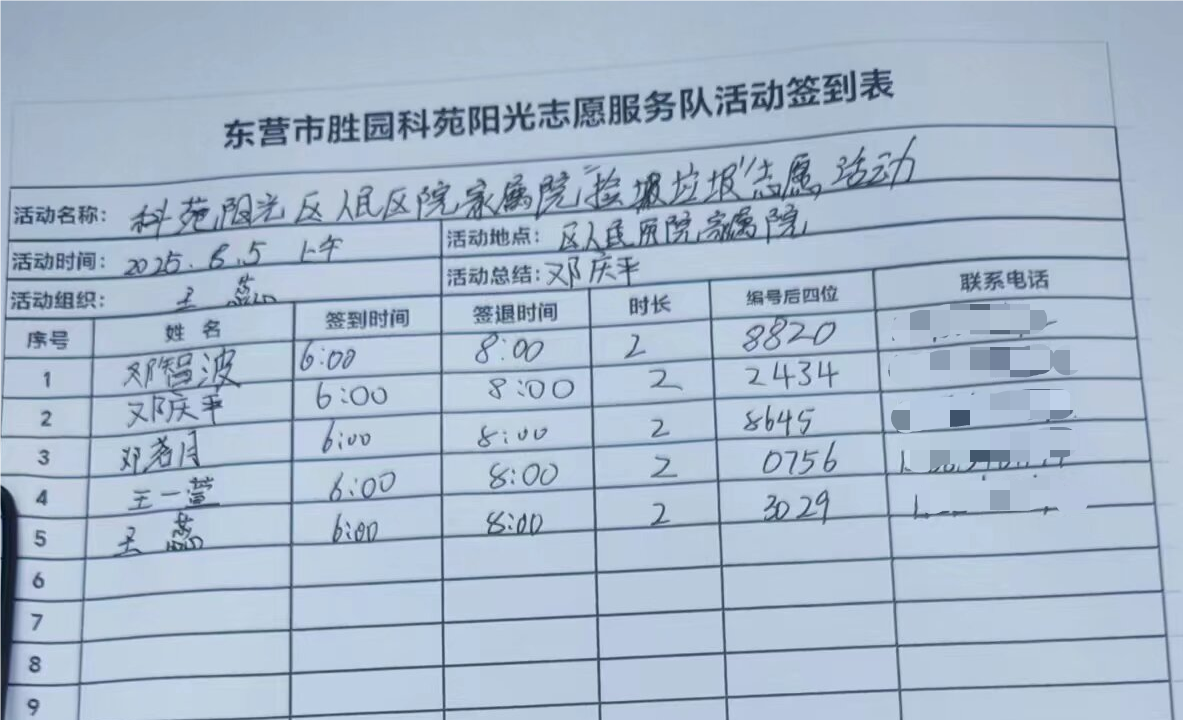 东营市胜园科苑阳光志愿服务队活动签到表
活动名称: 科苑阳光区人民区院家属院"捡拾垃圾"志愿活动
活动时间: 2025.6.5 上午 活动地点: 区人民医院家属院
活动组织: 王蕊 活动总结: 邓庆平
序号 姓名 签到时间 签退时间 时长 编号后四位 联系电话
1 邓智波 6:00 8:00 2 8820
2 邓庆平 6:00 8:00 2 2434
3 邓若月 6:00 8:00 2 8645
4 王一萱 6:00 8:00 2 0756
5 王蕊 6:00 8:00 2 3029
6
7
8
9